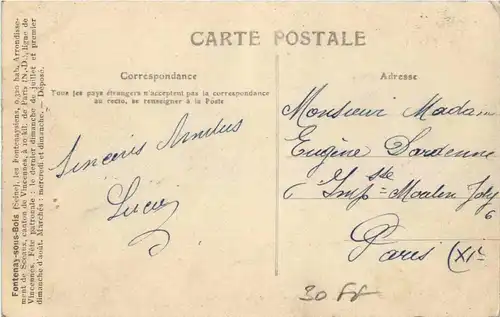 CARTE POSTALE
Correspondance
Tous les pays étrangers n'acceptent pas la correspondance
au recto, se renseigner à la Poste
Adresse
Sincères Amitiés
Lucie
Monsieur Madame
Eugène Dardenne
6 Imp = Moulin Joly
6
Paris (XIe
30 FF
Fontenay-sous-Bois (Seine). — Les Fontenaysiens, 9.320 hab. Arrondisse-
ment de Sceaux, canton de Vincennes, à 10 kil. de Paris (N.-D.), ligne de
Vincennes. Fête patronale : le dernier dimanche de juillet et premier
dimanche d'août. Marchés : mercredi et dimanche. — Déposé.